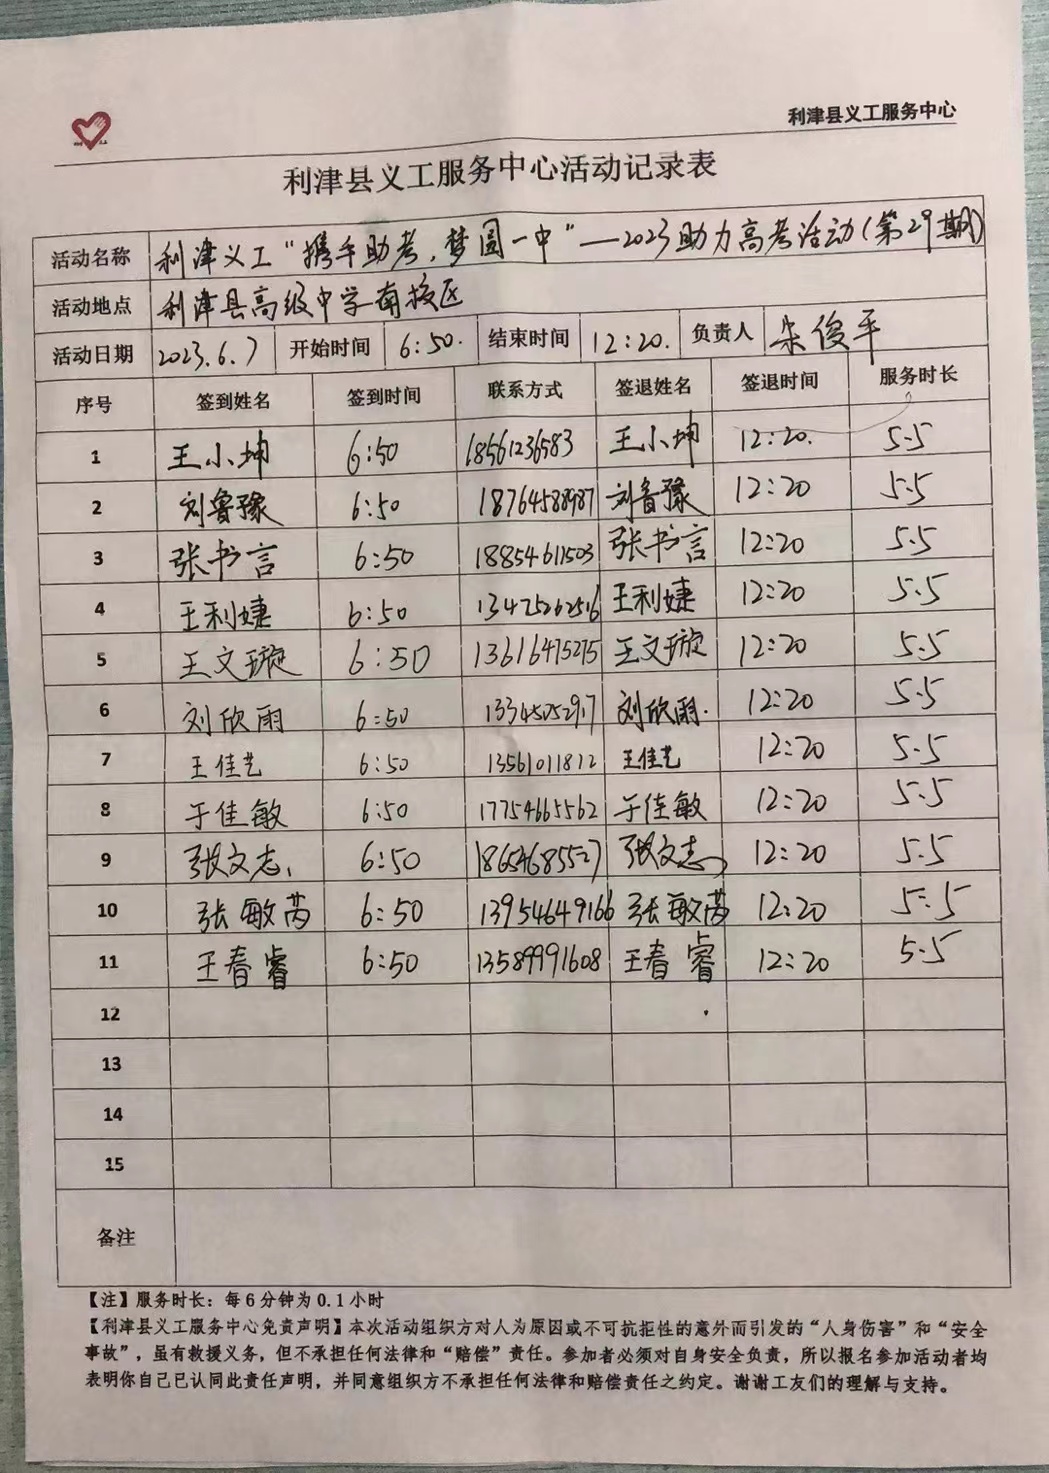 利津县义工服务中心
利津县义工服务中心活动记录表
活动名称 利津义工“携手助考，梦圆一中”—2023助力高考活动(第29期)
活动地点 利津县高级中学南校区
活动日期 2023.6.7 开始时间 6:50. 结束时间 12:20. 负责人 朱俊平
序号 签到姓名 签到时间 联系方式 签退姓名 签退时间 服务时长
1 王小坤 6:50 18561236583 王小坤 12:20. 5.5
2 刘鲁豫 6:50 18764588987 刘鲁豫 12:20 5.5
3 张书言 6:50 18854611503 张书言 12:20 5.5
4 王利婕 6:50 13475262516 王利婕 12:20 5.5
5 王文璇 6:50 13616475275 王文璇 12:20 5.5
6 刘欣雨 6:50 刘欣雨. 12:20 5.5
7 王佳艺 6:50 13561011812 王佳艺 12:20 5.5
8 于佳敏 6:50 17754665562 于佳敏 12:20 5.5
9 张文志 6:50 18654685527 张文志 12:20 5.5
10 张敏芮 6:50 13954649166 张敏芮 12:20 5.5
11 王春睿 6:50 13589991608 王春睿 12:20 5.5
12
13
14
15
备注
【注】服务时长：每6分钟为0.1小时
【利津县义工服务中心免责声明】本次活动组织方对人为原因或不可抗拒性的意外而引发的“人身伤害”和“安全
事故”，虽有救援义务，但不承担任何法律和“赔偿”责任。参加者必须对自身安全负责，所以报名参加活动者均
表明你自己已认同此责任声明，并同意组织方不承担任何法律和赔偿责任之约定。谢谢工友们的理解与支持。